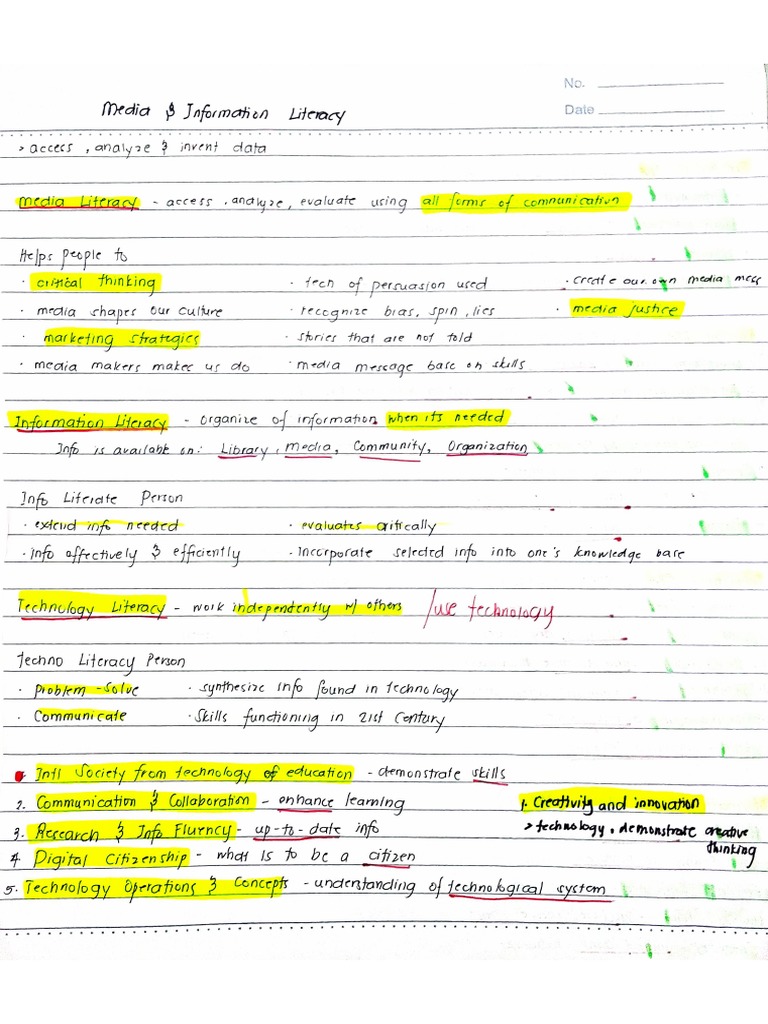 No.
Date
Media & Information Literacy
> access, analyze & invent data
Media Literacy - access, analyze, evaluate using all forms of communication
Helps people to
· critical thinking · tech of persuasion used · create our own media mess
· media shapes our culture · recognize bias, spin, lies · media justice
· marketing strategies · stories that are not told
· media makers makes us do · media message base on skills
Information Literacy - organize of information when its needed
Info is available on: Library, Media, Community, Organization
Info Literate Person
· extend info needed · evaluates critically
· Info effectively & efficiently · Incorporate selected info into one's knowledge base
Technology Literacy - work independently w/ others /use technology
Techno Literacy Person
· problem-solve · synthesize info found in technology
· Communicate · Skills functioning in 21st Century
Intl Society from technology of education - demonstrate skills
2. Communication & Collaboration - enhance learning 1. Creativity and innovation
3. Research & Info Fluency - up-to-date info > technology, demonstrate creative thinking
4. Digital Citizenship - what is to be a citizen
5. Technology Operations & Concepts - understanding of technological system